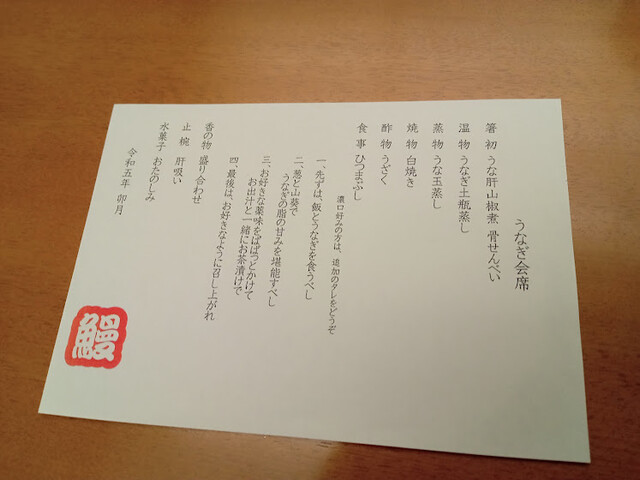 うなぎ会席
箸初 うな肝山椒煮 骨せんべい
温物 うなぎ土瓶蒸し
蒸物 うな玉蒸し
焼物 白焼き
酢物 うざく
食事 ひつまぶし
濃口好みの方は、追加のタレをどうぞ
一、先ずは、飯とうなぎを食うべし
二、葱と山葵で
うなぎの脂の甘みを堪能すべし
三、お好きな薬味をぱぱっとかけて
お出汁と一緒にお茶漬けで
四、最後は、お好きなように召し上がれ
香の物 盛り合わせ
止椀 肝吸い
水菓子 おたのしみ
令和五年 卯月
鰻